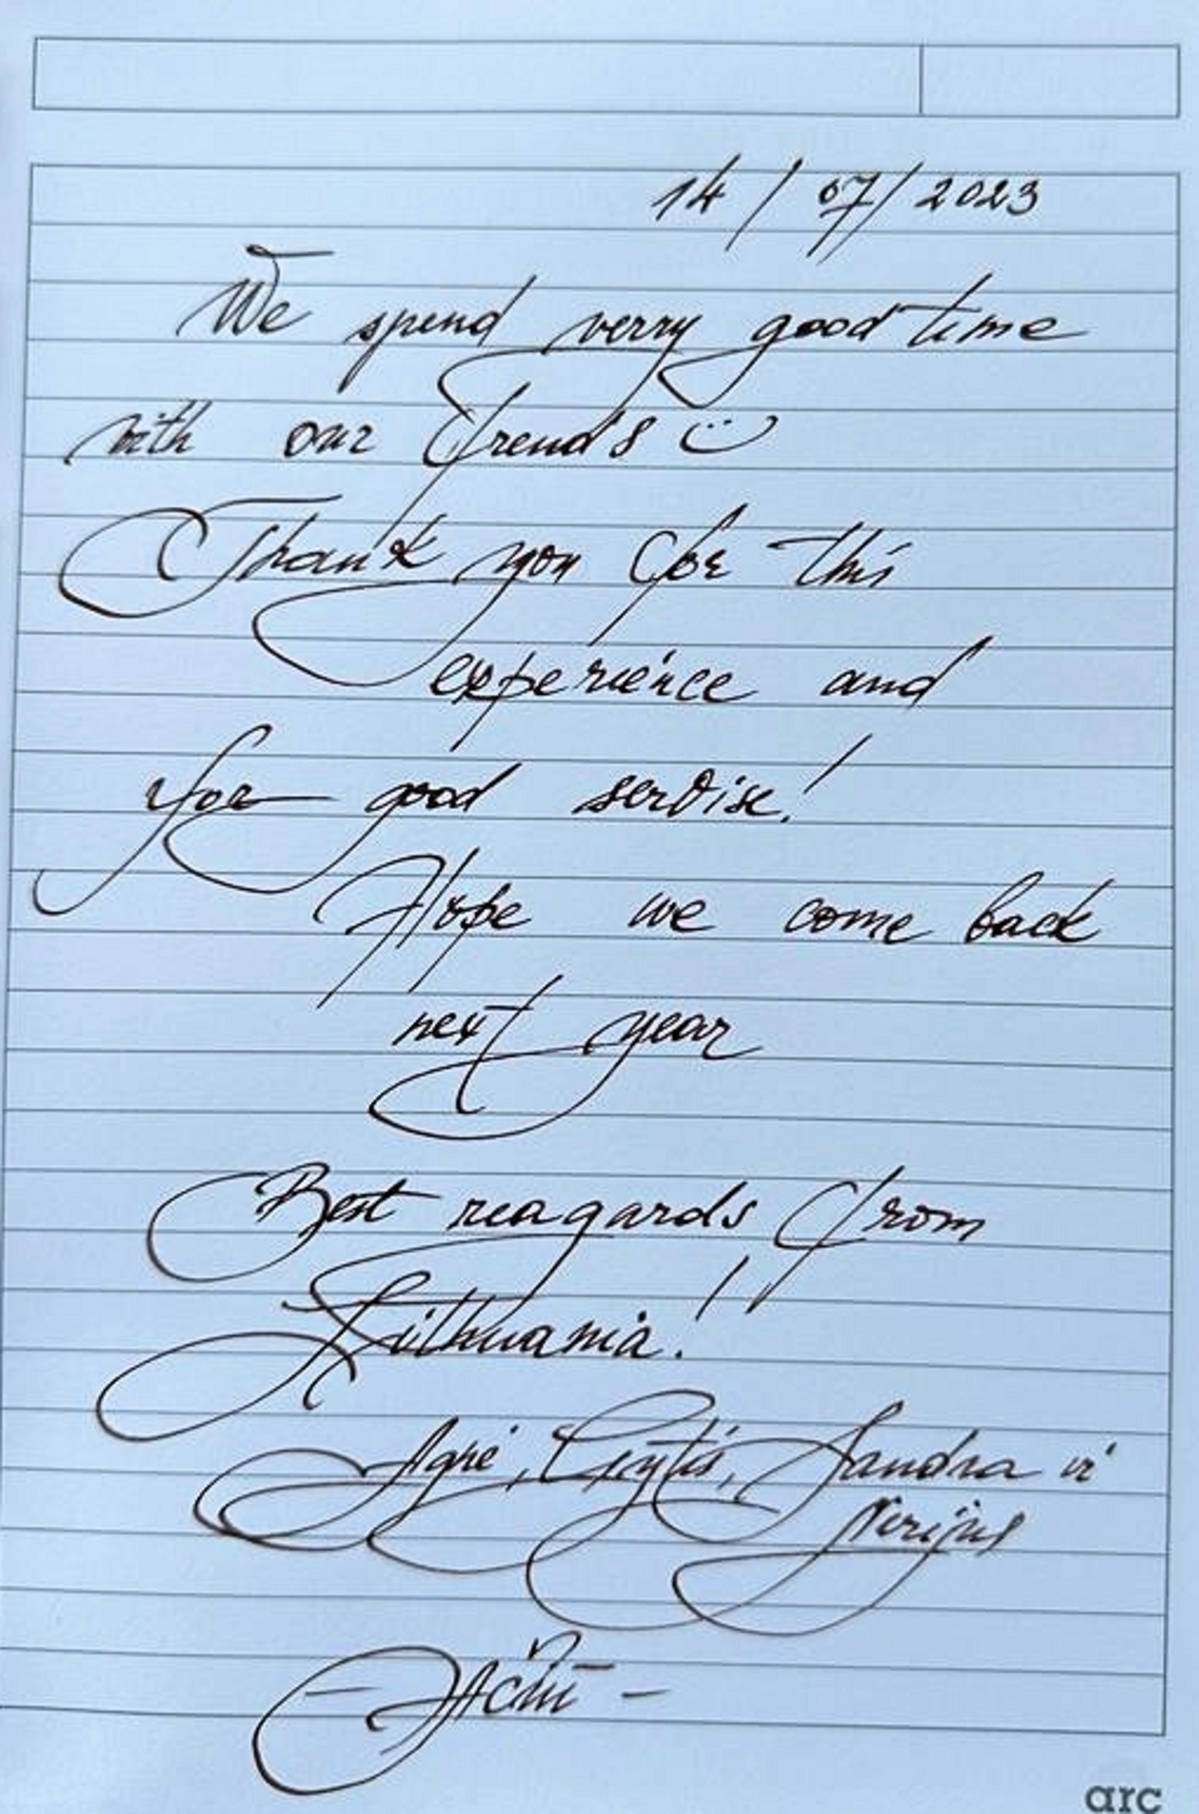 14 / 07 / 2023
We spend verry good time
with our frends
Thank you for this
experience and
for good servise!
Hope we come back
next year
Best reagards from
Lithuania!
Agnė, Gytis, Sandra ir
Nerijus
- Ačiū -
arc